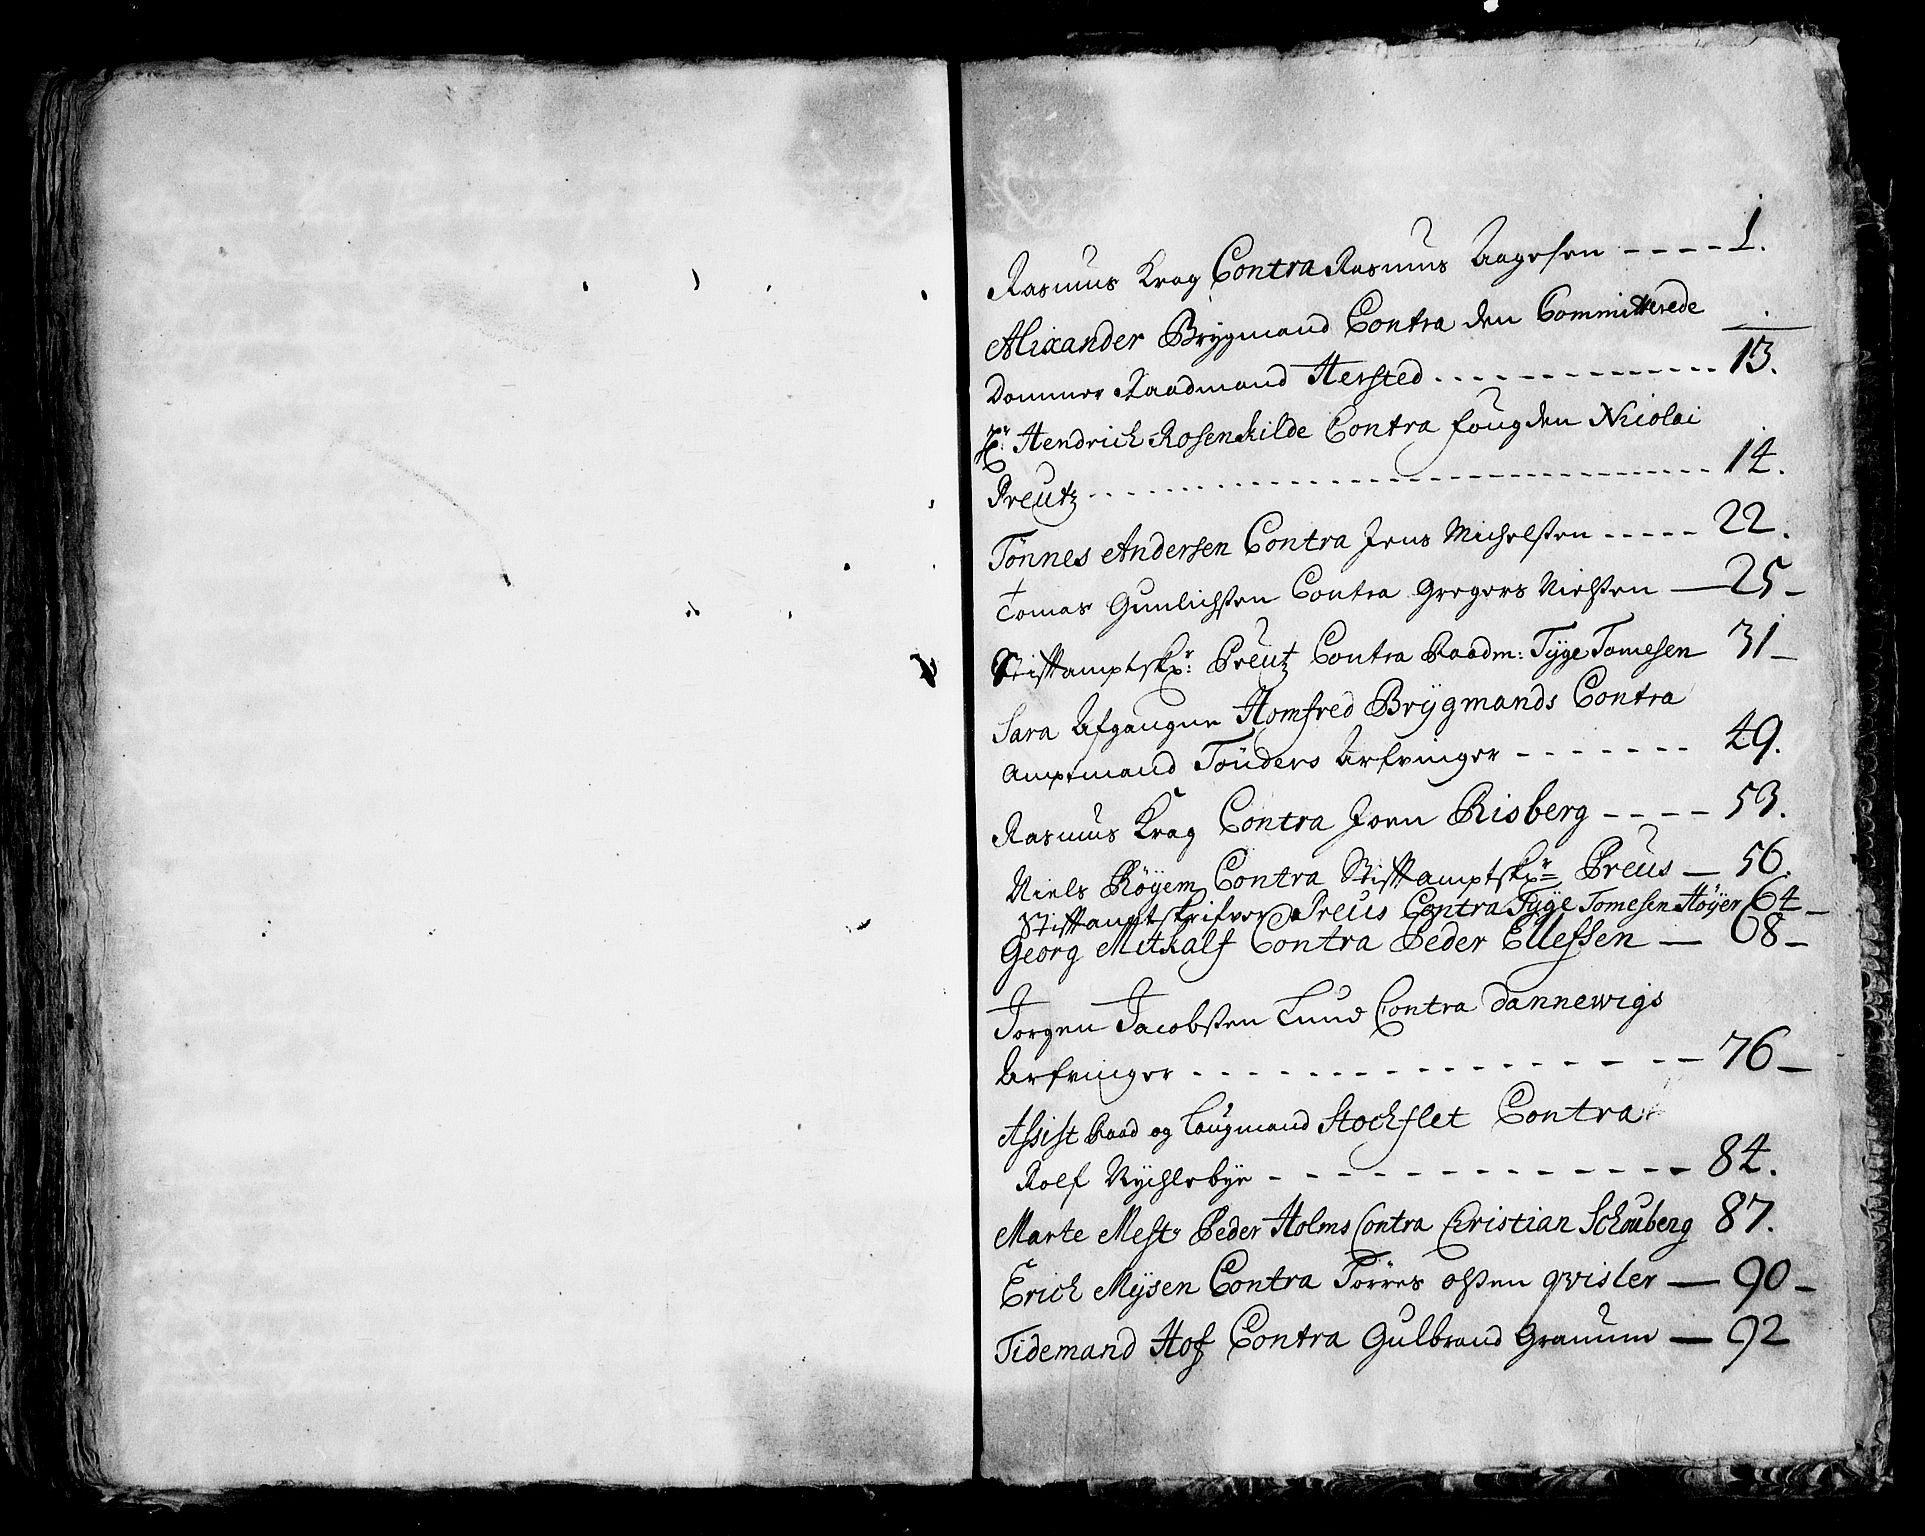 Rasmus Krag Contra Rasmus Aagesen ---- 1.
Alixander Brygmand Contra den Committerede
Dommer Raadmand Hersted .............. 13.
Hr: Hendrich Rosenkilde Contra fougden Nicolai
Preutz ------------------------ 14.
Tønnes Andersen Contra Jens Michelsen ----- 22.
Tomas Gunlichsen Contra Gregers Nielsen — 25 –
Stiftamptskr: Preutz Contra Raadm: Tyge Tomesen 31 –
Sara Afgangne Homfred Brygmands Contra
Amptmand Tönders Arfvinger ------- 49.
Rasmus Krag Contra Joen Risberg ---- 53.
Niels Røyem Contra Stiftamptskr= Preus — 56.
Stiftamptskrifver Preus Contra Tyge Tomesen Høyer 64 –
Georg Mitkalf Contra Peder Ellefsen — 68 –
Jorgen Jacobsen Lund Contra Dannewigs
Arfvinger - - - - - - - - - - - - - - - 76 –
Assist Raad og Laugmand Stockflet Contra
Rolf Nychlebye - - - - - - - - - - - - - 84.
Marte Mestr Peder Holms Contra Christian Schouberg 87.
Erich Mysen Contra Torres olsen qvisler — 90 –
Tidemand Hof Contra Gulbrand Granum — 92